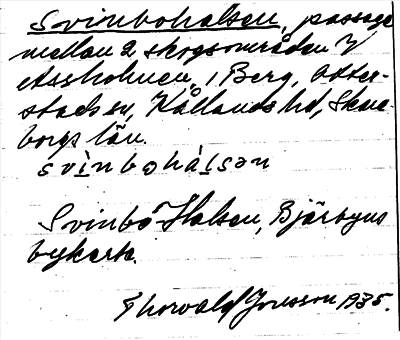 Svinbohalsen, passage
mellan 2 skogsområden V
Assholmen, i Berg, Otter-
stads sn, Kållands hd, Skara-
borgs län.
svìnbohàlsən
Svinbo Halsen, Bjärbyns
bykarta.
Thorvald Jonsson 1935.